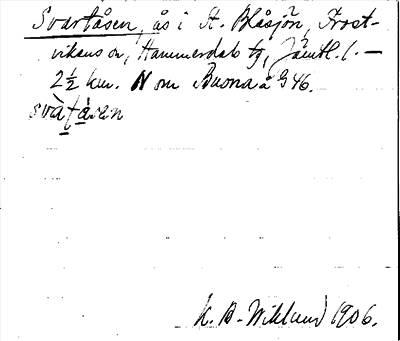 Svartåsen, ås i St. Blåsjön, Frost-
vikens sn, Hammerdals tg, Jämtl. l. —
2½ km. N om Busna å G 46.
svàtåsen
K. B. Wiklund 1906.